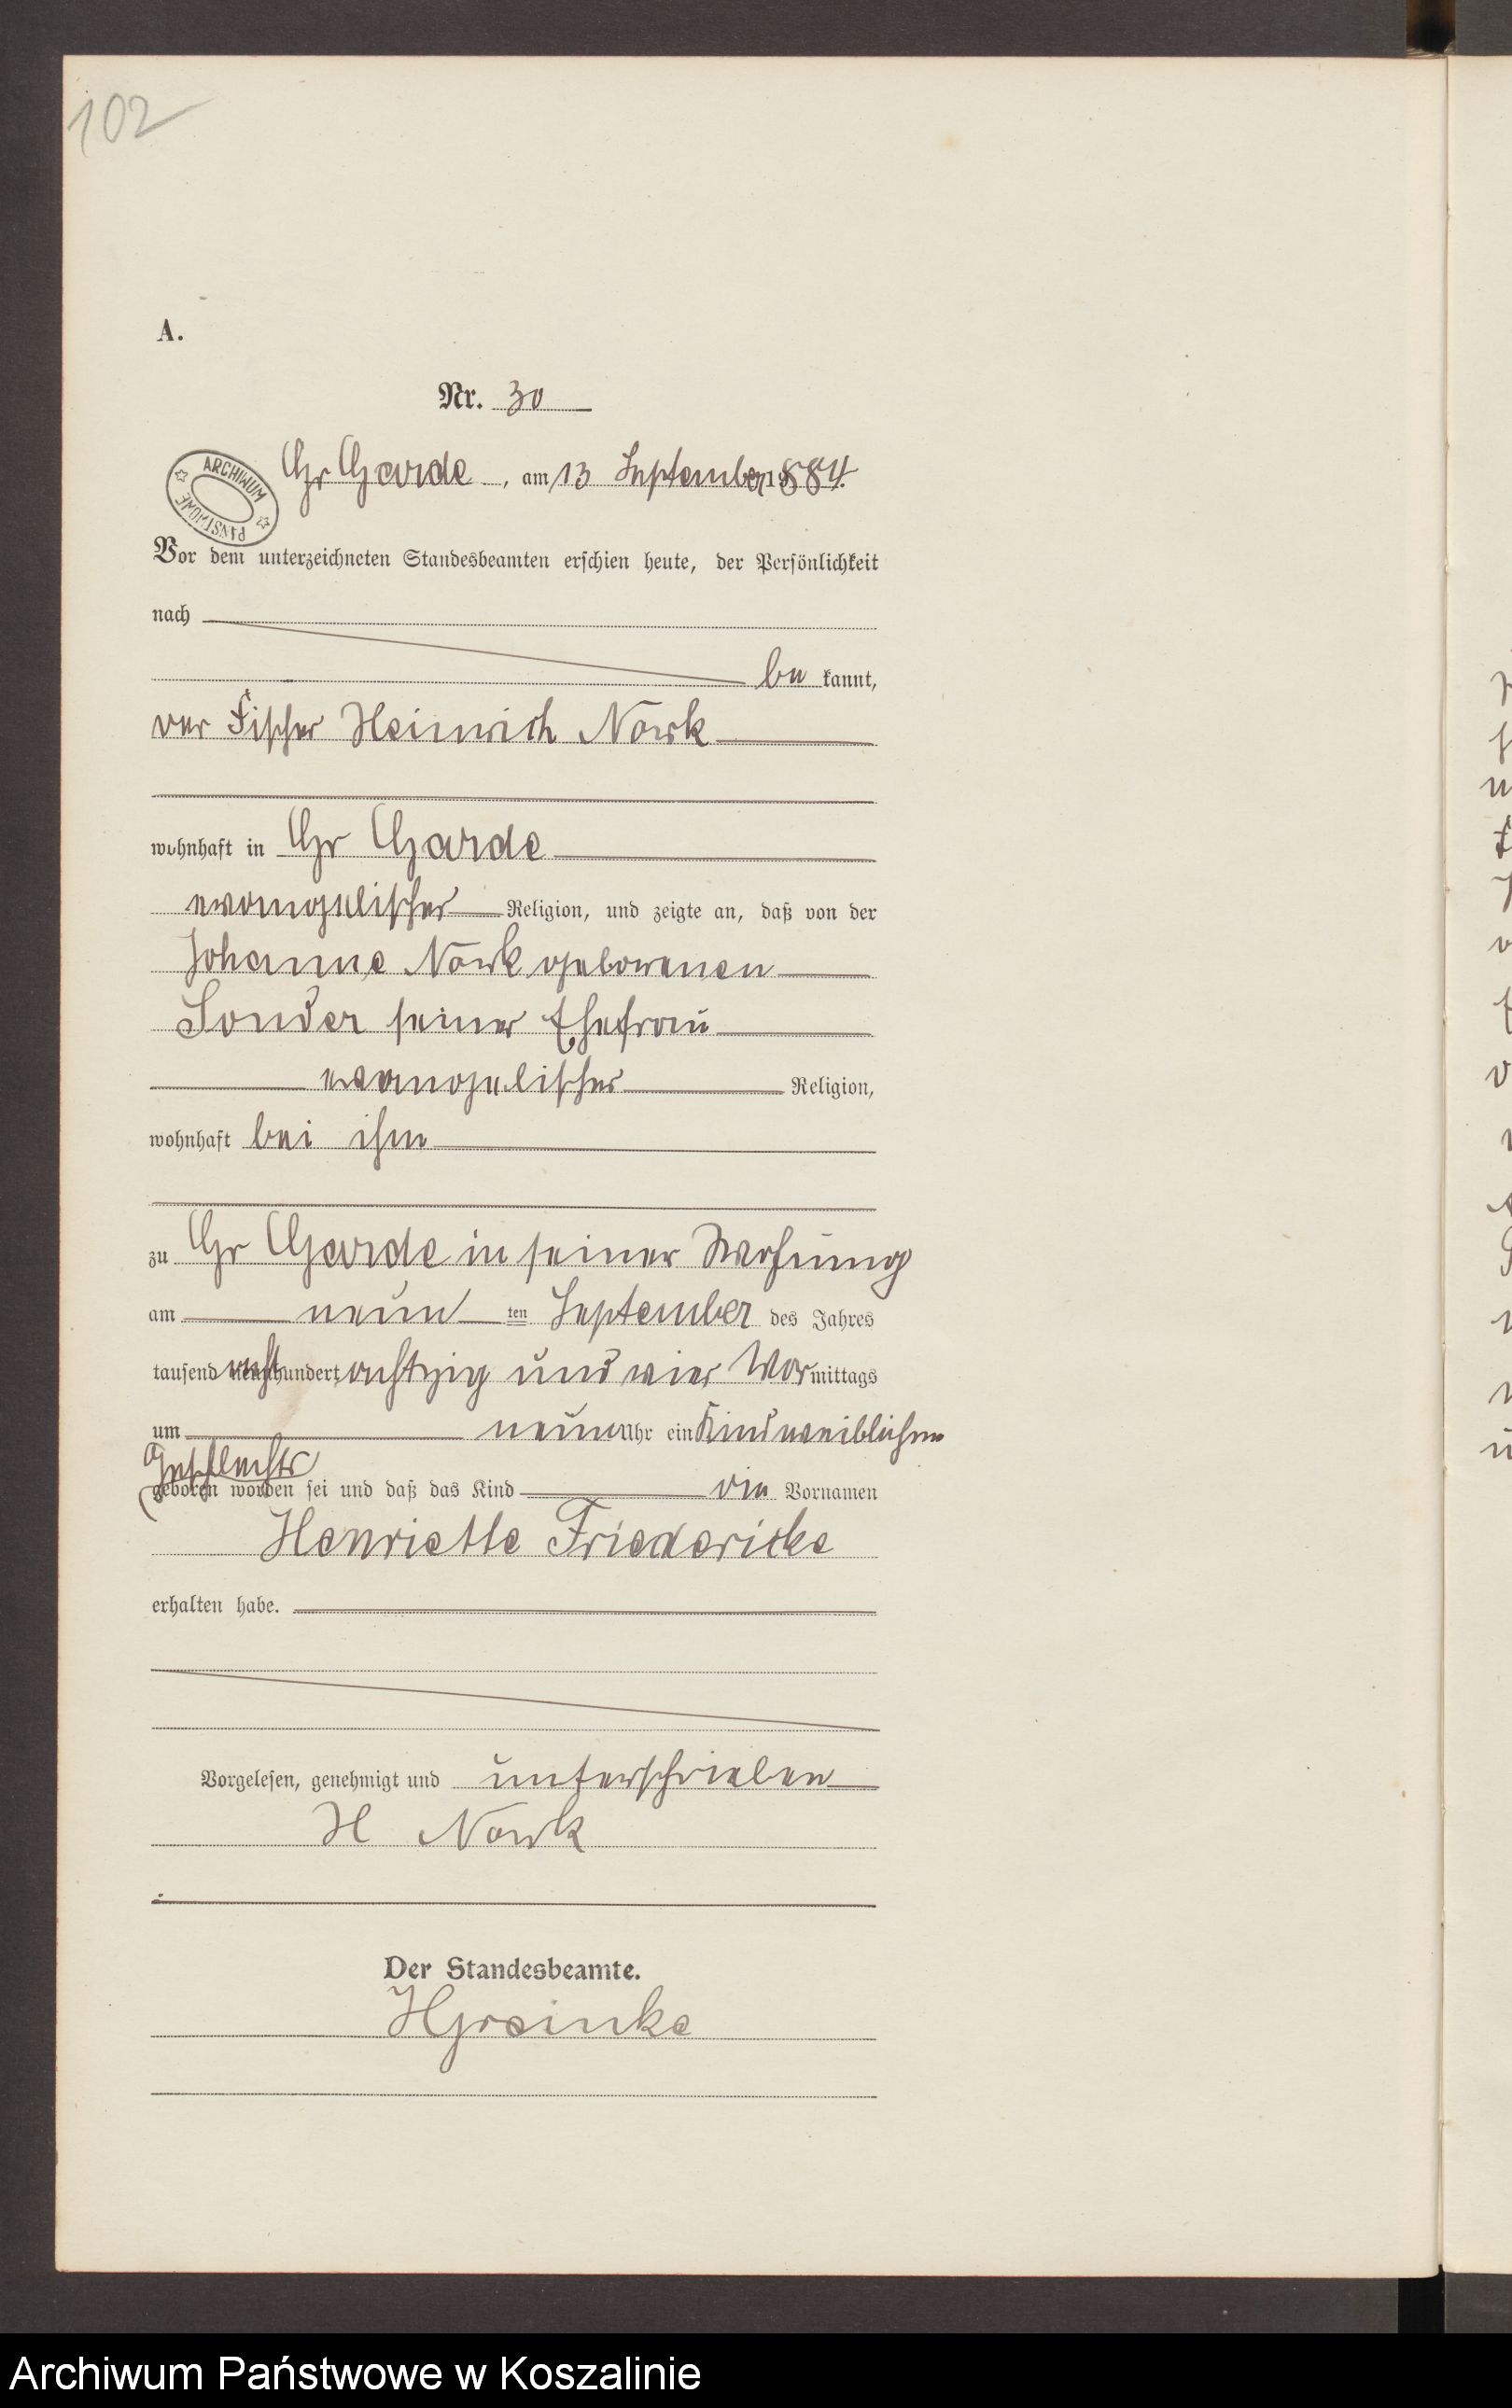 102
A.
Nr. 30
ARCHIWUM PAŃSTWOWE
Gr Garde, am 13 September 1884.
Vor dem unterzeichneten Standesbeamten erschien heute, der Persönlichkeit
nach
be kannt,
der Fischer Heinrich Nowk
wohnhaft in Gr Garde
evangelischer Religion, und zeigte an, daß von der
Johanne Nowk geborenen
Sonder seiner Ehefrau
evangelischer Religion,
wohnhaft bei ihm
zu Gr Garde in seiner Wohnung
am neun ten September des Jahres
tausend acht hundert achtzig und vier Vormittags
um neun Uhr ein Kind weiblichen
Geschlechts
geboren worden sei und daß das Kind die Vornamen
Henriette Friedericke
erhalten habe.
Vorgelesen, genehmigt und unterschrieben
H Nowk
Der Standesbeamte.
HGreinke
Archiwum Państwowe w Koszalinie